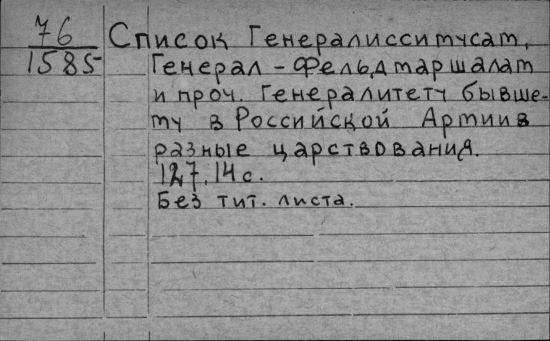 76
1585
Список Генералиссимусам,
Генерал-Фельдмаршалам
и проч. Генералитету бывше-
му в Российской Армии в
разные царствования.
127,14с.
Без тит. листа.